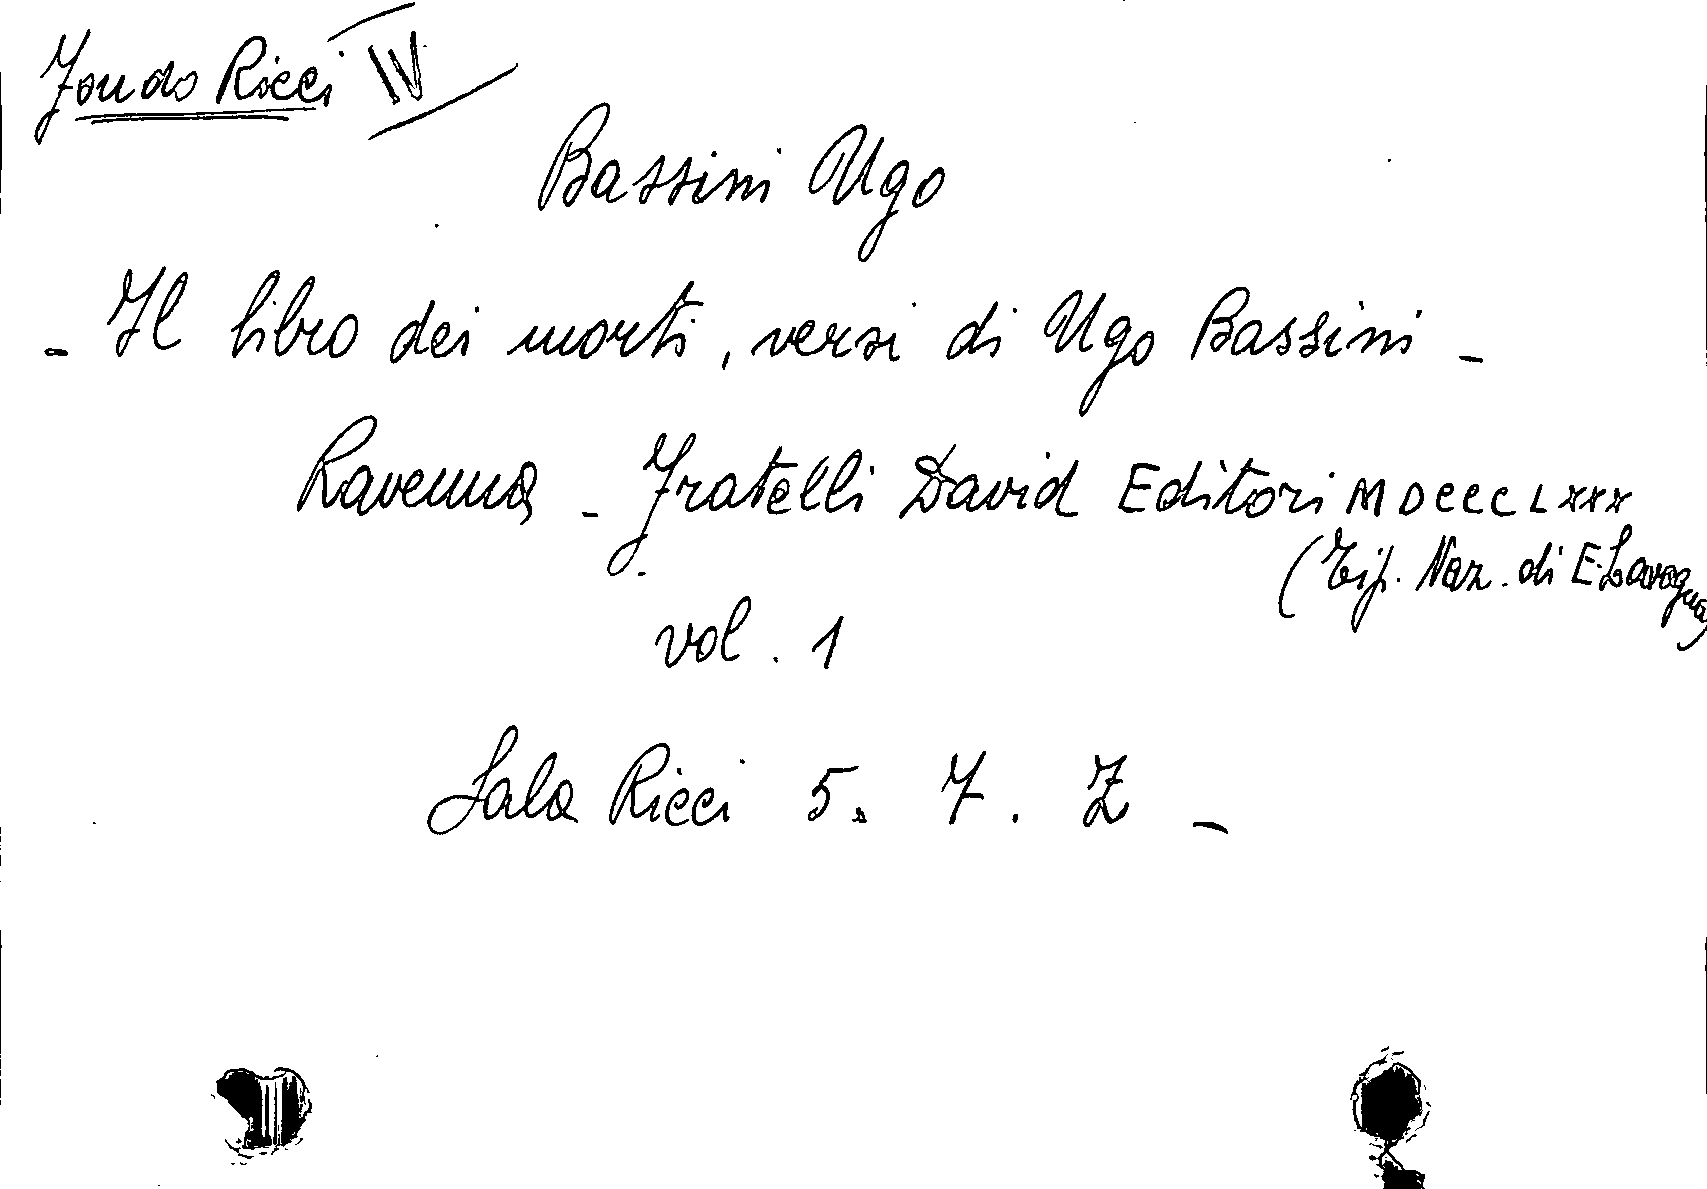 Fondo Ricci IV
Bassini Ugo
- Il libro dei morti, versi di Ugo Bassini -
Ravenna - Fratelli David Editori MDCCCLXXX
(Tip. Naz. di E. Lavagna)
vol. 1
Sala Ricci 5. 7. Z -